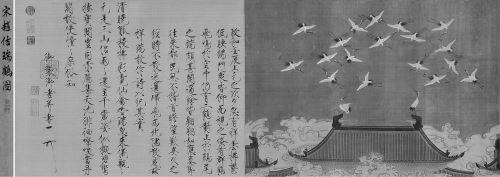 政和壬辰上元之次夕忽有祥雲拂鬱
低映端門衆皆仰而視之倏有群鶴
飛鳴於空中仍有二鶴對止於鴟尾
之端頗甚閑適餘皆翱翔如應奏節
往來都民無不稽首瞻望歎異久之
經時不散迤邐歸飛西北隅散感茲
祥瑞故作詩以紀其實
清曉觚稜拂彩霓仙禽告瑞忽來儀飄飄
元是三山侶兩兩還呈千歲姿似擬碧鸞
棲寶閣豈同赤雁集天池徘徊嘹唳當丹
闕故使憧憧庶俗知
御製御畫并書
宋趙佶瑞鶴圖